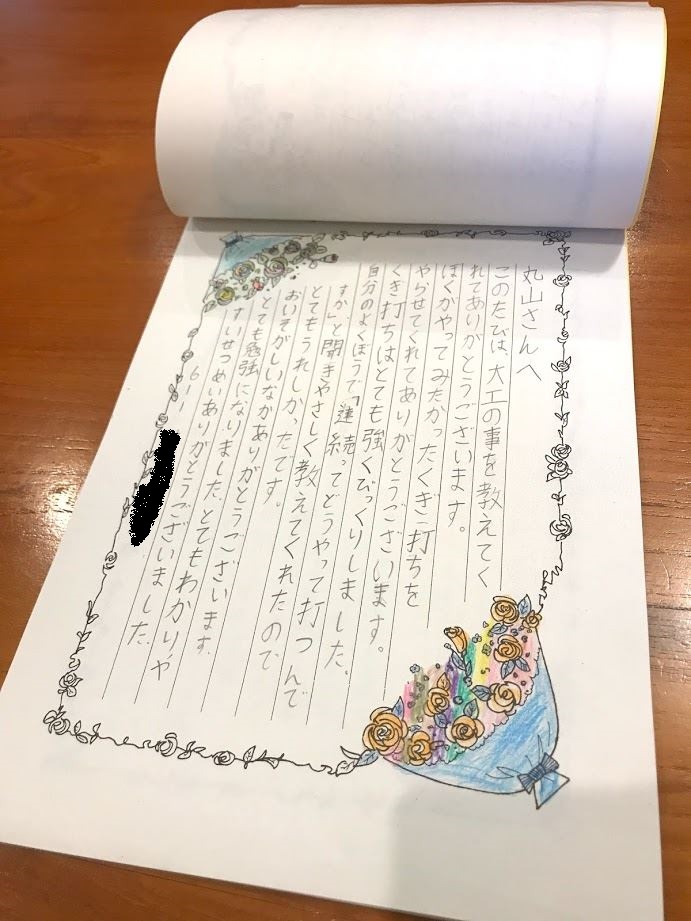 丸山さんへ
このたびは、大工の事を教えてく
れてありがとうございます。
ぼくがやってみたかったくぎ打ちを
やらせてくれてありがとうございます。
くぎ打ちはとても強くびっくりしました。
自分のよくぼうで「連続ってどうやって打つんで
すか」と聞きやさしく教えてくれたので
とてもうれしかったです。
おいそがしいなかありがとうございます。
とても勉強になりました。とてもわかりや
すいせつめいありがとうございました。
6-1